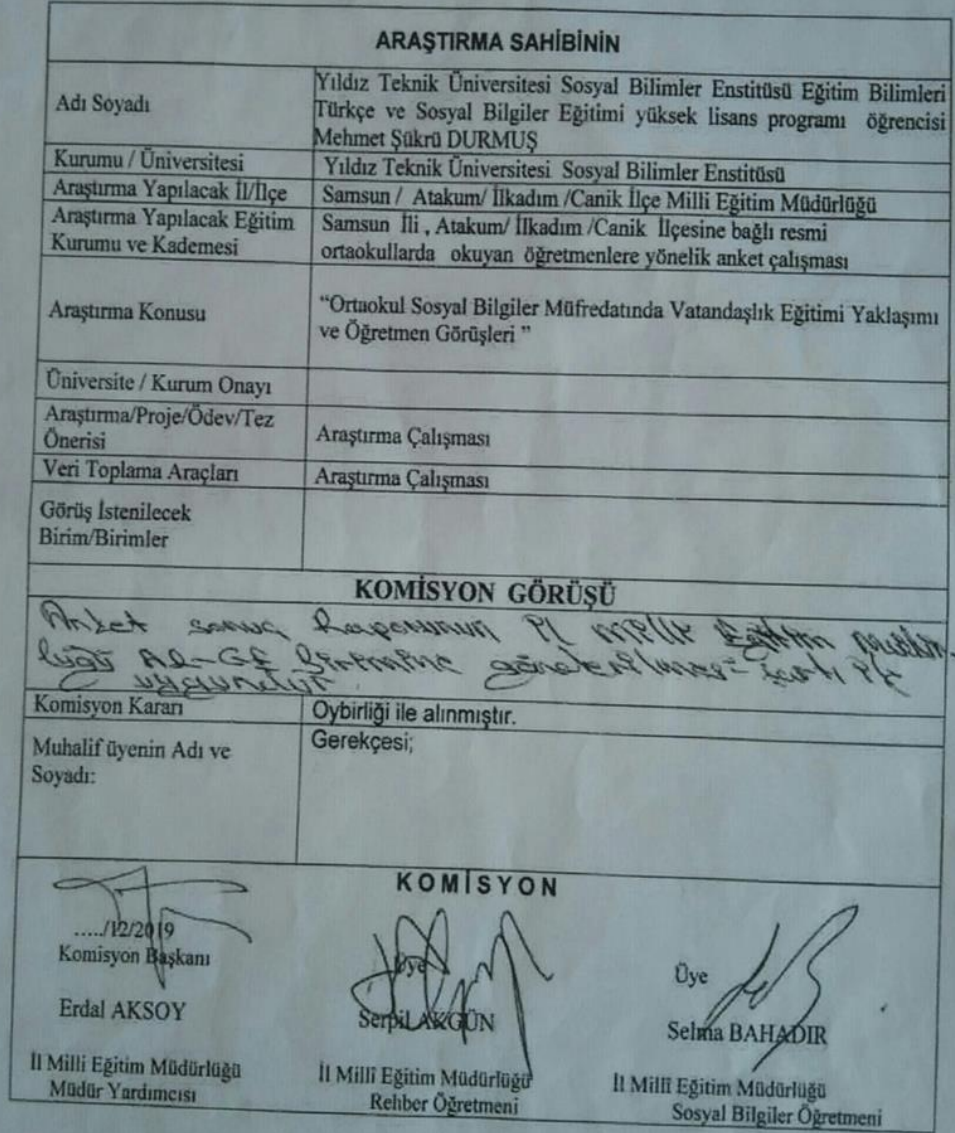 ARAŞTIRMA SAHİBİNİN
Adı Soyadı
Yıldız Teknik Üniversitesi Sosyal Bilimler Enstitüsü Eğitim Bilimleri
Türkçe ve Sosyal Bilgiler Eğitimi yüksek lisans programı öğrencisi
Mehmet Şükrü DURMUŞ
Kurumu / Üniversitesi
Yıldız Teknik Üniversitesi Sosyal Bilimler Enstitüsü
Araştırma Yapılacak İl/İlçe
Samsun / Atakum/ İlkadım /Canik İlçe Milli Eğitim Müdürlüğü
Araştırma Yapılacak Eğitim
Kurumu ve Kademesi
Samsun İli , Atakum/ İlkadım /Canik İlçesine bağlı resmi
ortaokullarda okuyan öğretmenlere yönelik anket çalışması
Araştırma Konusu
“Ortaokul Sosyal Bilgiler Müfredatında Vatandaşlık Eğitimi Yaklaşımı
ve Öğretmen Görüşleri ”
Üniversite / Kurum Onayı
Araştırma/Proje/Ödev/Tez
Önerisi
Araştırma Çalışması
Veri Toplama Araçları
Araştırma Çalışması
Görüş İstenilecek
Birim/Birimler
KOMİSYON GÖRÜŞÜ
Anket sonuç Raporunun İl Millî Eğitim Müdür-
lüğü AR-GE Birimine gönderilmesi şartı ile
uygundur
Komisyon Kararı
Oybirliği ile alınmıştır.
Muhalif üyenin Adı ve
Soyadı:
Gerekçesi;
KOMİSYON
...../12/2019
Komisyon Başkanı
Erdal AKSOY
İl Milli Eğitim Müdürlüğü
Müdür Yardımcısı
Üye
Serpil AKGÜN
İl Millî Eğitim Müdürlüğü
Rehber Öğretmeni
Üye
Selma BAHADIR
İl Millî Eğitim Müdürlüğü
Sosyal Bilgiler Öğretmeni